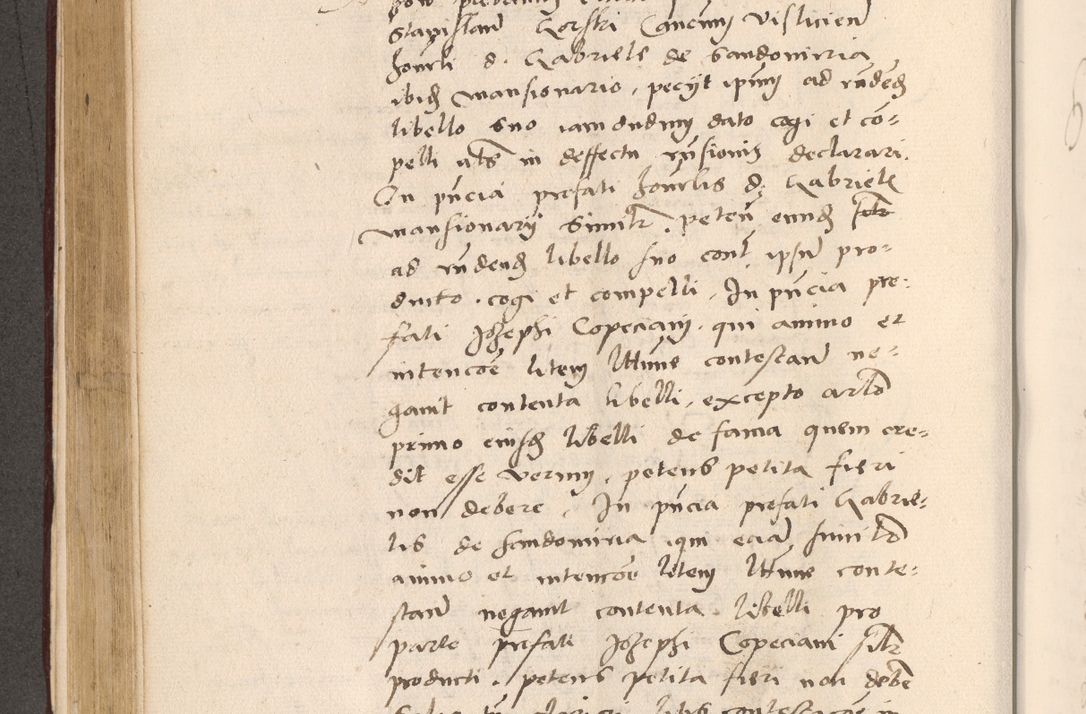 Stanislaum Gorski Canonicum Vislicien
honorabili d. Gabriele de Sandomiria
ibidem mansionario, peciit ipsum ad rñdendum
libello suo iamdudum dato cogi et com-
pelli als in deffectu rñsionis declarari.
In pñcia prefati honorabilis d. Gabrielis
mansionarij similiter peten eundem
ad rñdendum libello suo contra ipsum pro-
ducto. cogi et compelli. In pñcia pre-
fati Josephi Copeciani. qui animo et
intencõe litem contestan ne-
gavit contenta libelli, excepto articulo
primo eiusdem libelli de fama quem cre-
dit esse verum, petens petita fieri
non debere. In pñcia prefati Gabrie-
lis de Sandomiria qui eciam simili
animo et intencõe litem conte-
stan negavit contenta libelli pro
parte prefati Josephi Copeciani
producti. petens petita fieri non debere